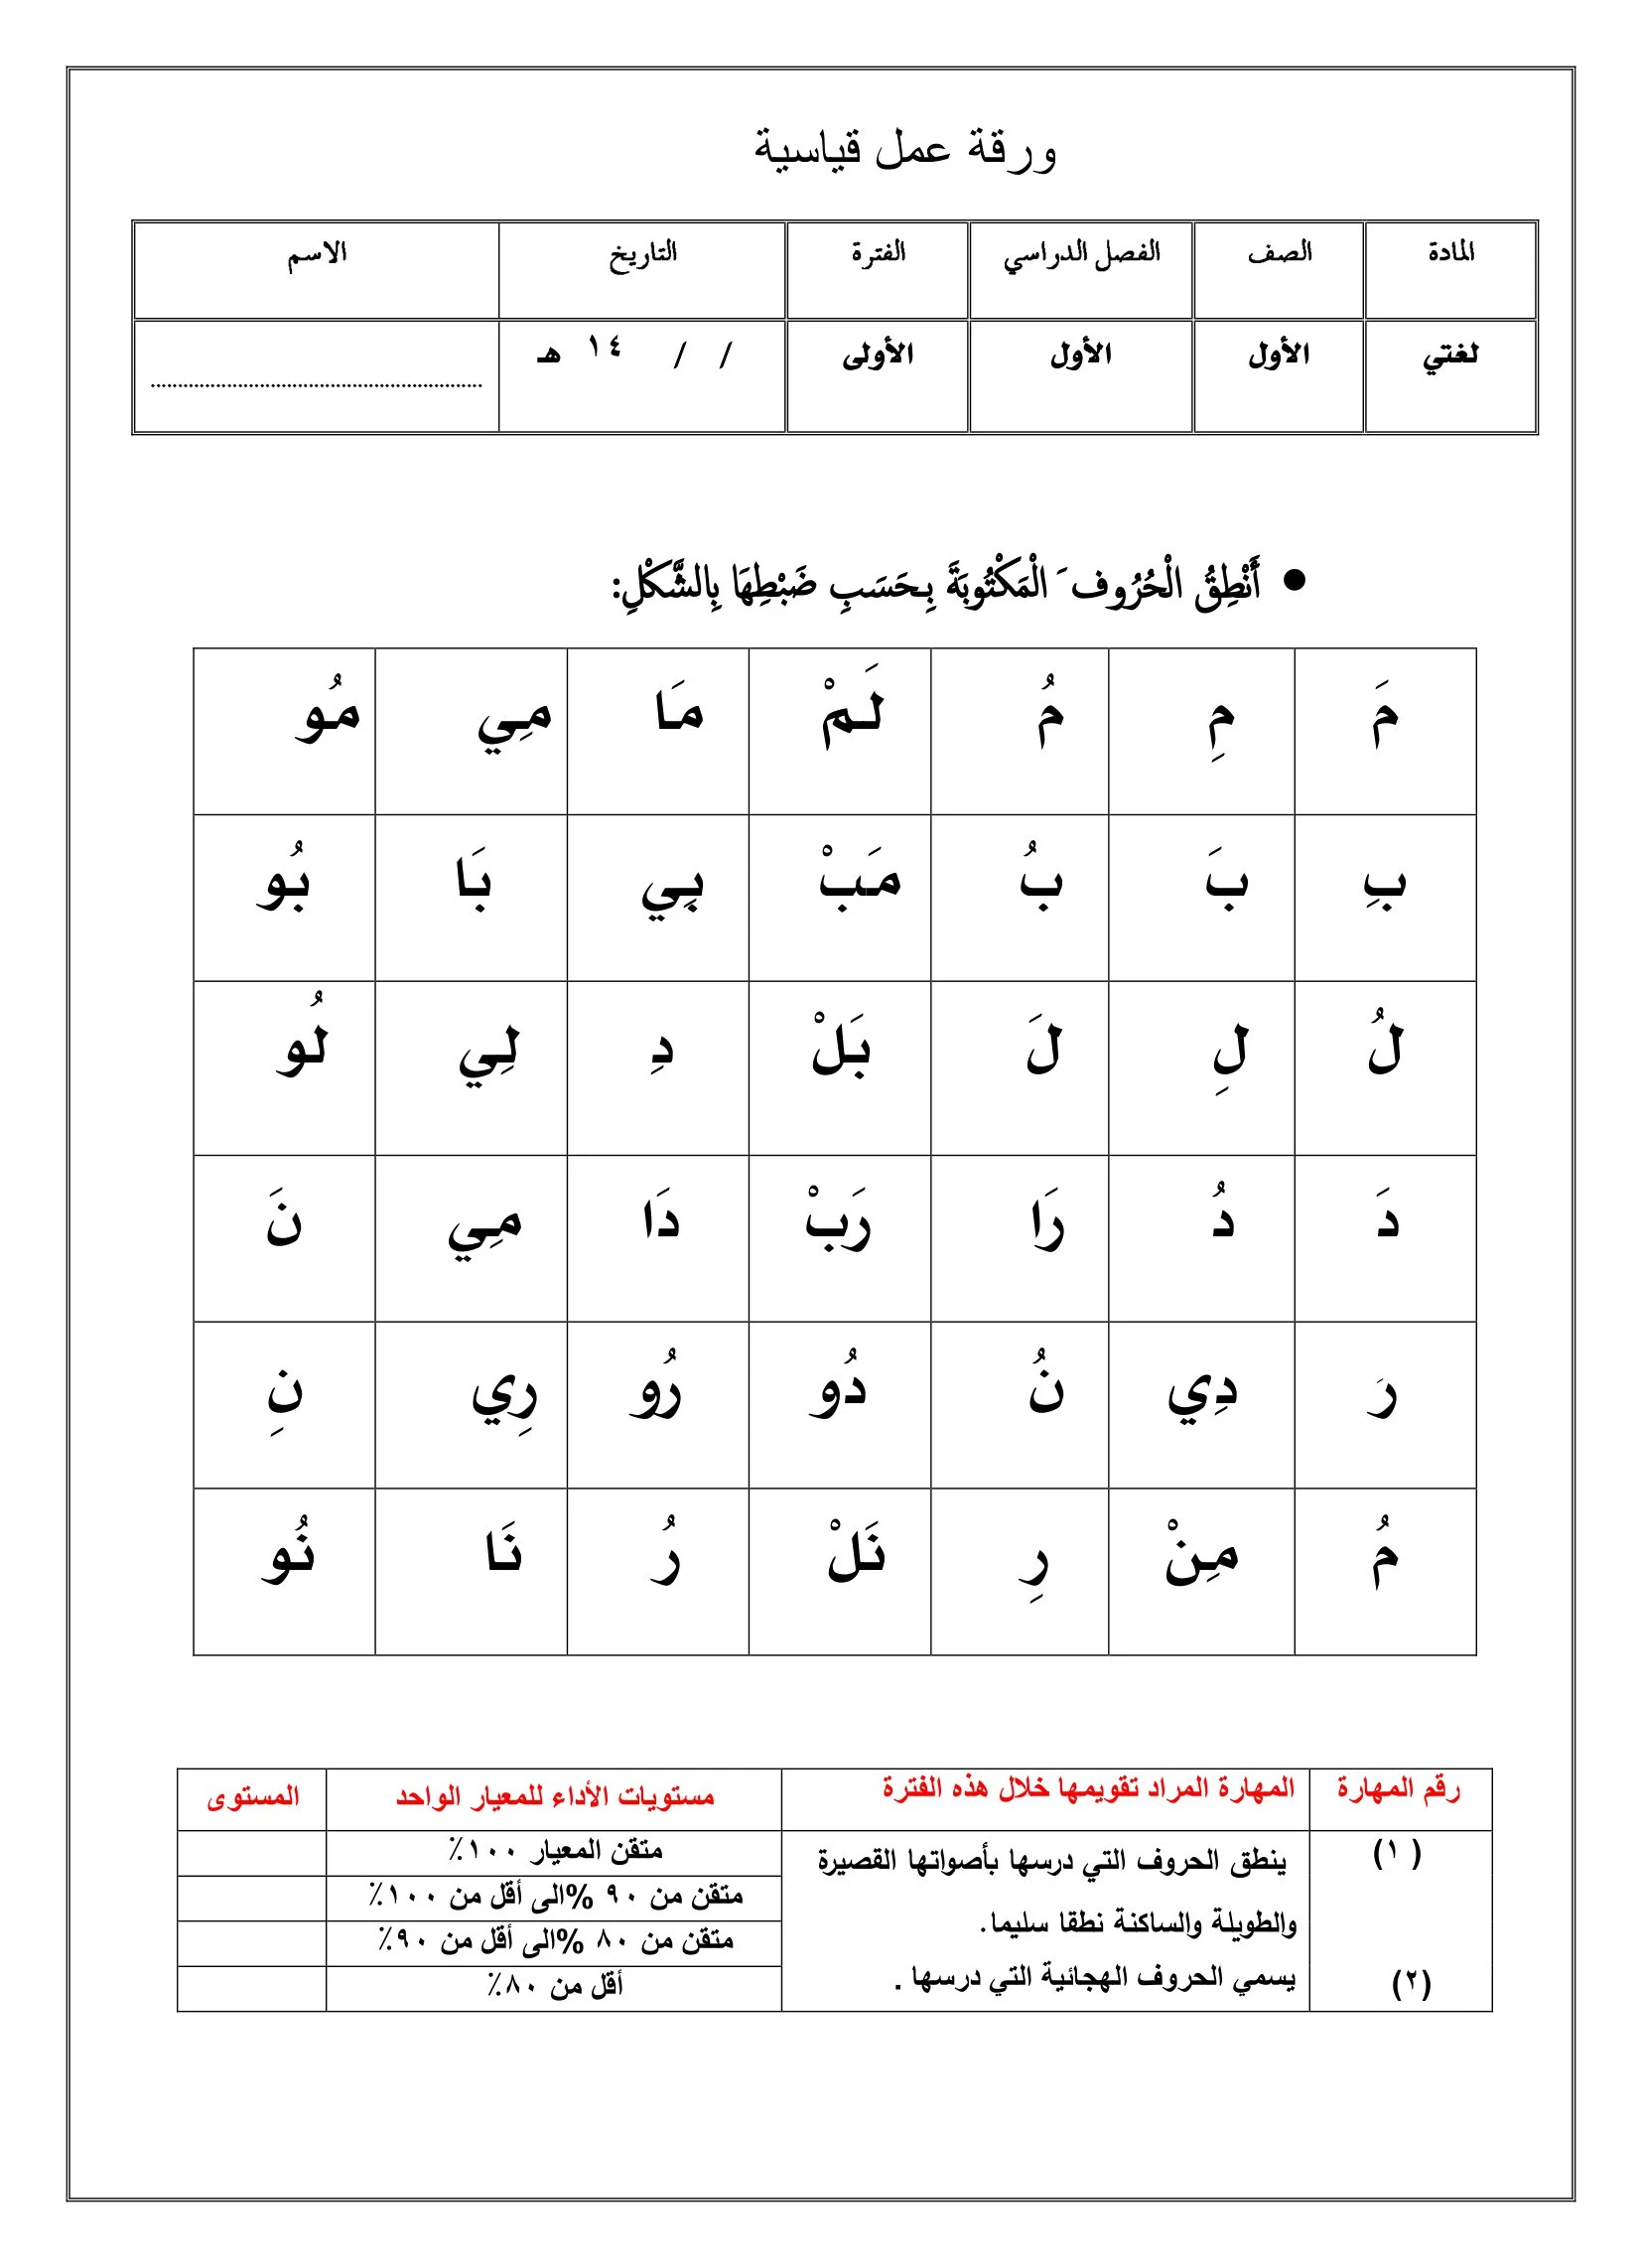 ورقة عمل قياسية
المادة الصف الفصل الدراسي الفترة التاريخ الاسم
لغتي الأول الأول الأولى / / ١٤ هـ ..............................
• أَنْطِقُ الْحُرُوف َ الْمَكْتُوبَةَ بِحَسَبِ ضَبْطِهَا بِالشَّكْلِ:
مَ مِ مُ لَمْ مَا مِي مُو
بِ بَ بُ مَبْ بِي بَا بُو
لُ لِ لَ بَلْ دِ لِي لُو
دَ دُ رَا رَبْ دَا مِي نَ
رَ دِي نُ دُو رُو رِي نِ
مُ مِنْ رِ نَلْ رُ نَا نُو
رقم المهارة المهارة المراد تقويمها خلال هذه الفترة مستويات الأداء للمعيار الواحد المستوى
(١) ينطق الحروف التي درسها بأصواتها القصيرة متقن المعيار ١٠٠٪
متقن من ٩٠ %الى أقل من ١٠٠٪
والطويلة والساكنة نطقا سليما. متقن من ٨٠ %الى أقل من ٩٠٪
(٢) يسمي الحروف الهجائية التي درسها . أقل من ٨٠٪